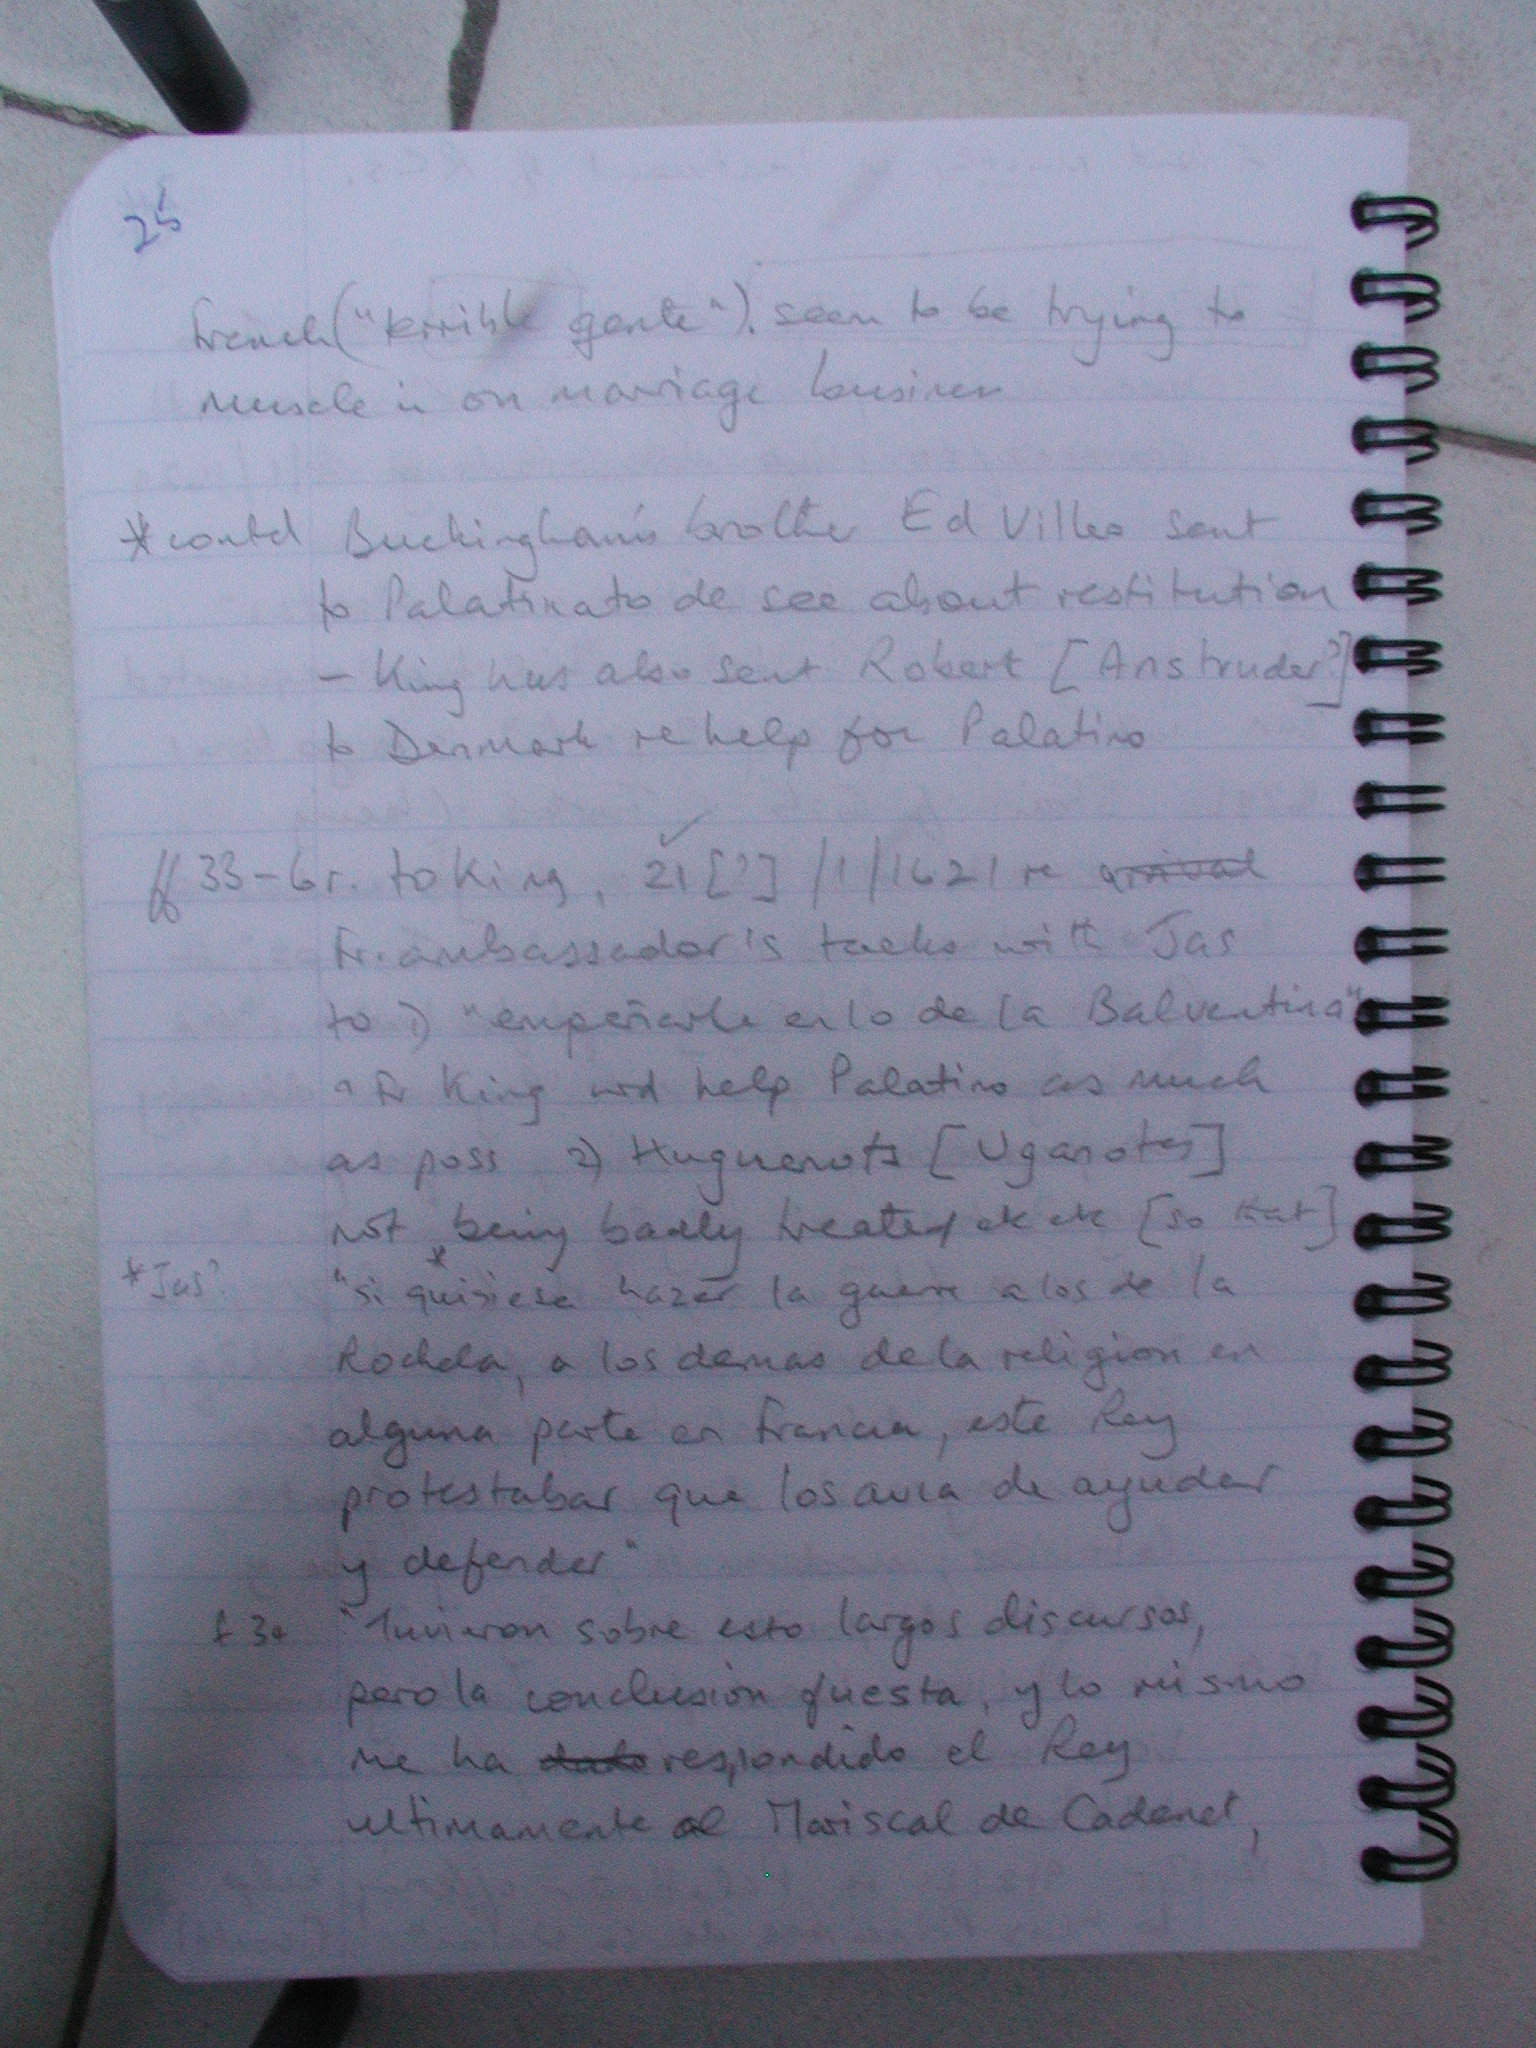 25
French ("terrible gente"). seem to be trying to
muscle in on marriage business
* contd Buckingham's brother Ed Villes sent
to Palatinato de see about restitution
- King has also sent Robert [Anstruder?]
to Denmark re help for Palatino
ff 33-6r. to King, 21 [?] /1/1621 re arrival
Fr. ambassador's talks with Jas
to 1) "empeñarle en lo de la Balventina"
Fr King wd help Palatino as much
as poss 2) Huguenots [Uganotes]
not being badly treated [so that]
* Jas?
"si quisiese hazer la guerra a los de la
Rochela, a los demas de la religion en
alguna parte en Francia, este Rey
protestabar que los avia de ayudar
y defender"
"Tuvieron sobre esto largos discursos,
pero la conclusión questa, y lo mismo
me ha respondido el Rey
ultimamente al Mariscal de Cadenet,